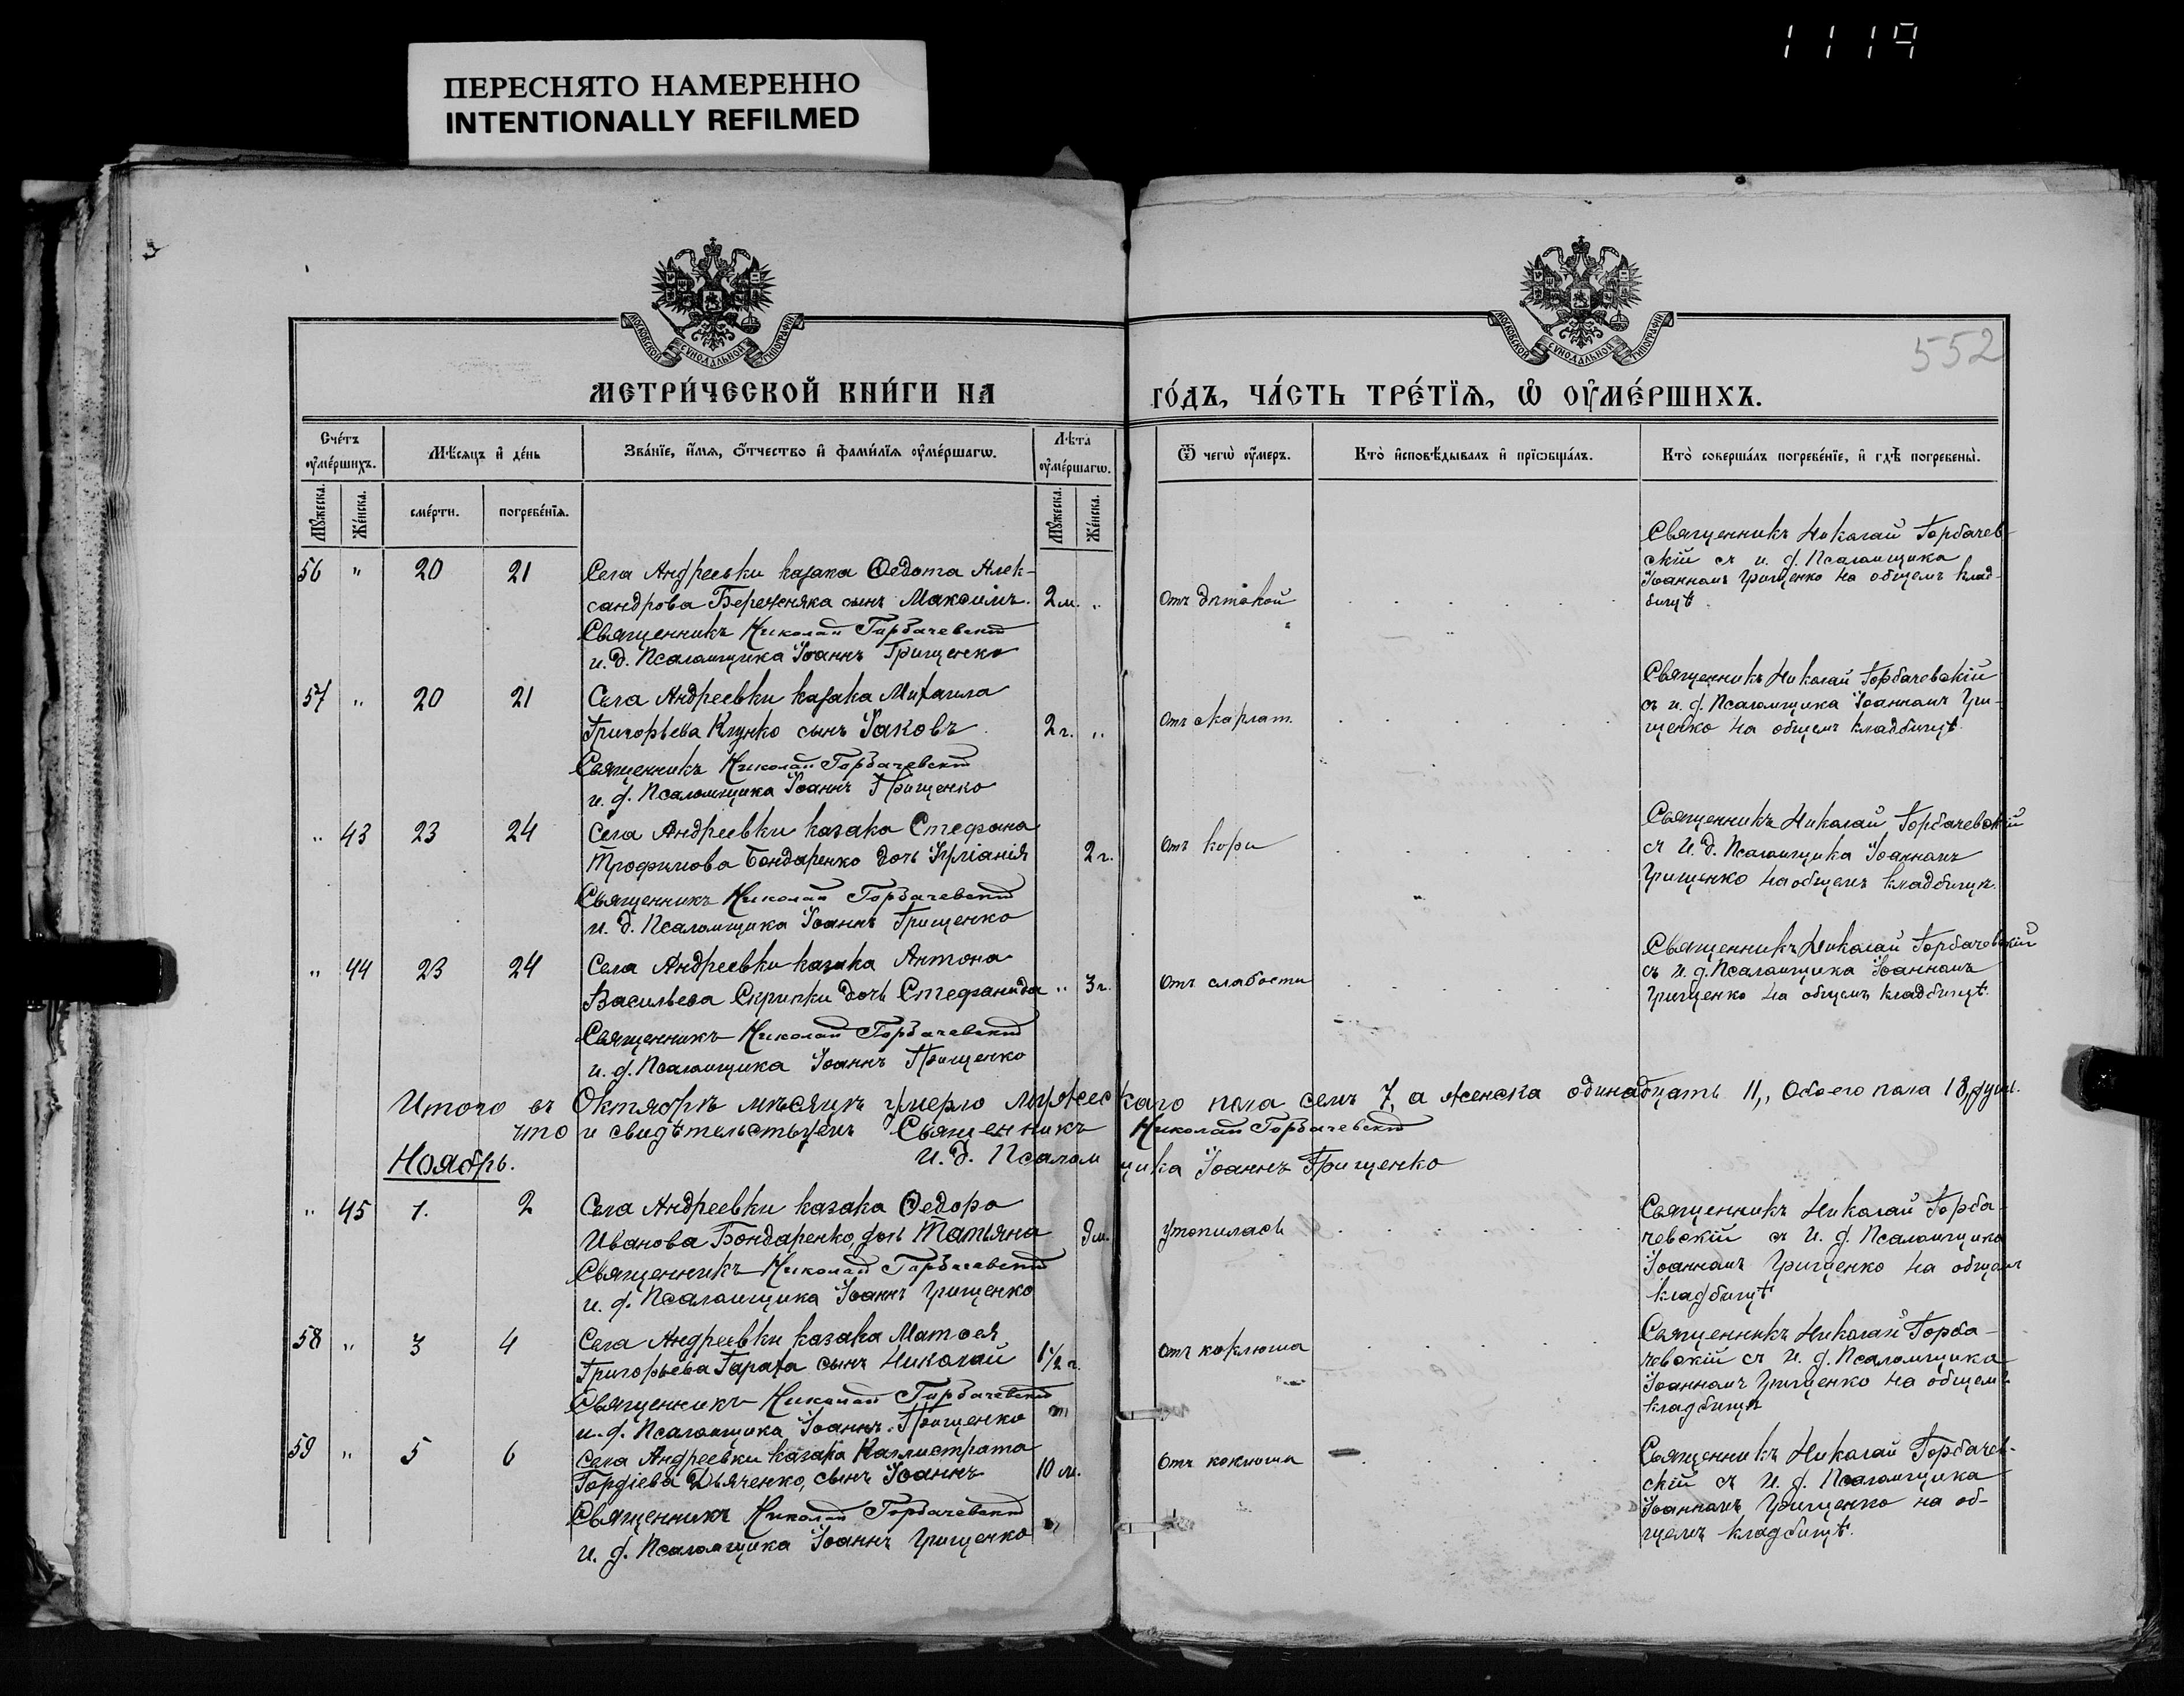 1119
ПЕРЕСНЯТО НАМЕРЕННО
INTENTIONALLY REFILMED
МОСКОВСКОЙ СѴНОДАЛЬНОЙ ТИПОГРАФІИ
МОСКОВСКОЙ СѴНОДАЛЬНОЙ ТИПОГРАФІИ
552
МЕТРИ́ЧЕСКОЙ КНИ́ГИ НА
ГО́ДЪ, ЧА́СТЬ ТРЕ́ТЇѦ, Ѡ҆ ОУ҆МЕ́РШИХЪ.
Сче́тъ оу҆ме́ршихъ.
Мѣ́сяцъ и҆ де́нь
Зва́нїе, и҆́мѧ, ѻ҆́тчество и҆ фами́лїѧ оу҆ме́ршагѡ.
Лѣта̀ оу҆ме́ршагѡ.
Ѿ чегѡ̀ оу҆́меръ.
Кто̀ и҆сповѣ́дывалъ и҆ прїѡбща́лъ.
Кто̀ соверша́лъ погребе́нїе, и҆ гдѣ̀ погребены̀.
Мꙋ́жеска.
Же́нска.
сме́рти.
погребе́нїѧ.
Мꙋ́жеска.
Же́нска.
56 " 20 21 Села Андреевки казака Ѳедота Алек-
сандрова Бережняка сынъ Максимъ. 2 м. " Отъ дѣтской
Священникъ Николай Горбачевскій
и. д. Псаломщика Іоаннъ Грищенко
Священникъ Николай Горбачев-
скій съ и. д. Псаломщика
Іоанномъ Грищенко на общемъ клад-
бищѣ
57 " 20 21 Села Андреевки казака Михаила
Григорьева Клунко сынъ Іаковъ 2 г. " Отъ скарлат.
Священникъ Николай Горбачевскій
и. д. Псаломщика Іоаннъ Грищенко
Священникъ Николай Горбачевскій
съ и. д. Псаломщика Іоанномъ Гри-
щенко на общемъ кладбищѣ.
" 43 23 24 Села Андреевки казака Стефана
Трофимова Бондаренко дочь 2 г. Отъ кори
Священникъ Николай Горбачевскій
и. д. Псаломщика Іоаннъ Грищенко
Священникъ Николай Горбачевскій
съ И. д. Псаломщика Іоанномъ
Грищенко на общемъ кладбищѣ.
" 44 23 24 Села Андреевки казака Антона
Васильева Скрипки дочь Стефанида " 3 г. Отъ слабости
Священникъ Николай Горбачевскій
и. д. Псаломщика Іоаннъ Грищенко
Священникъ Николай Горбачевскій
съ И. д. Псаломщика Іоанномъ
Грищенко на общемъ кладбищѣ.
Итого въ Октябрѣ мѣсяцѣ умерло мужескаго пола семь 7, а женска одинадцать 11,, Обоего пола 18, душъ.
что и свидѣтельствуемъ Священникъ Николай Горбачевскій
И. д. Псаломщика Іоаннъ Грищенко
Ноябрь.
" 45 1. 2 Села Андреевки казака Ѳедора
Иванова Бондаренко, дочь Татьяна 9 м. утопилась
Священникъ Николай Горбачевскій
и. д. Псаломщика Іоаннъ Грищенко
Священникъ Николай Горба-
чевскій съ И. д. Псаломщика
Іоанномъ Грищенко на общемъ
кладбищѣ
58 " 3 4 Села Андреевки казака Матѳея
Григорьева Гараха сынъ Николай 1 1/2 г. Отъ коклюша
Священникъ Николай Горбачевскій
и. д. Псаломщика Іоаннъ Грищенко
Священникъ Николай Горба-
чевскій съ И. д. Псаломщика
Іоанномъ Грищенко на общемъ
кладбищѣ
59 " 5 6 Села Андреевки казака Каллистрата
Гордіева Дьяченко, сынъ Іоаннъ 10 м. Отъ коклюша
Священникъ Николай Горбачевскій
и. д. Псаломщика Іоаннъ Грищенко
Священникъ Николай Горбачев-
скій съ И. д. Псаломщика
Іоанномъ Грищенко на об-
щемъ кладбищѣ.